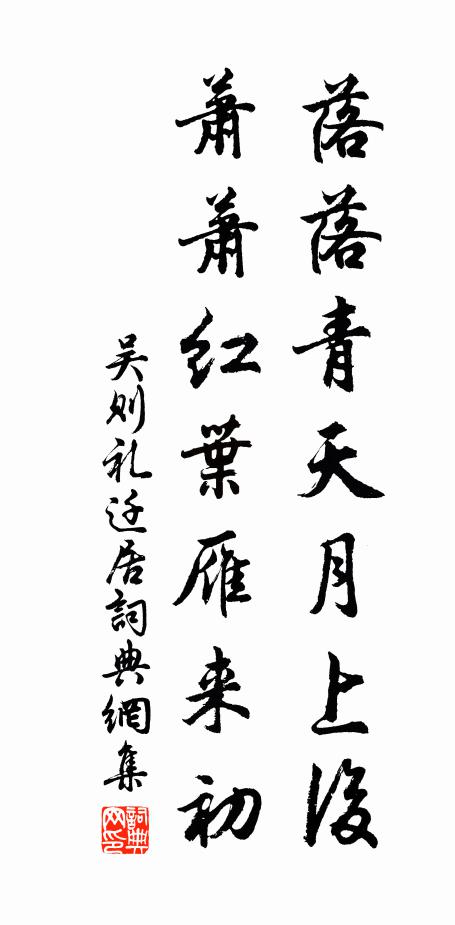 落落青天月上後
蕭蕭紅葉雁来初
吴则礼迁居詞典網集
詞典网印